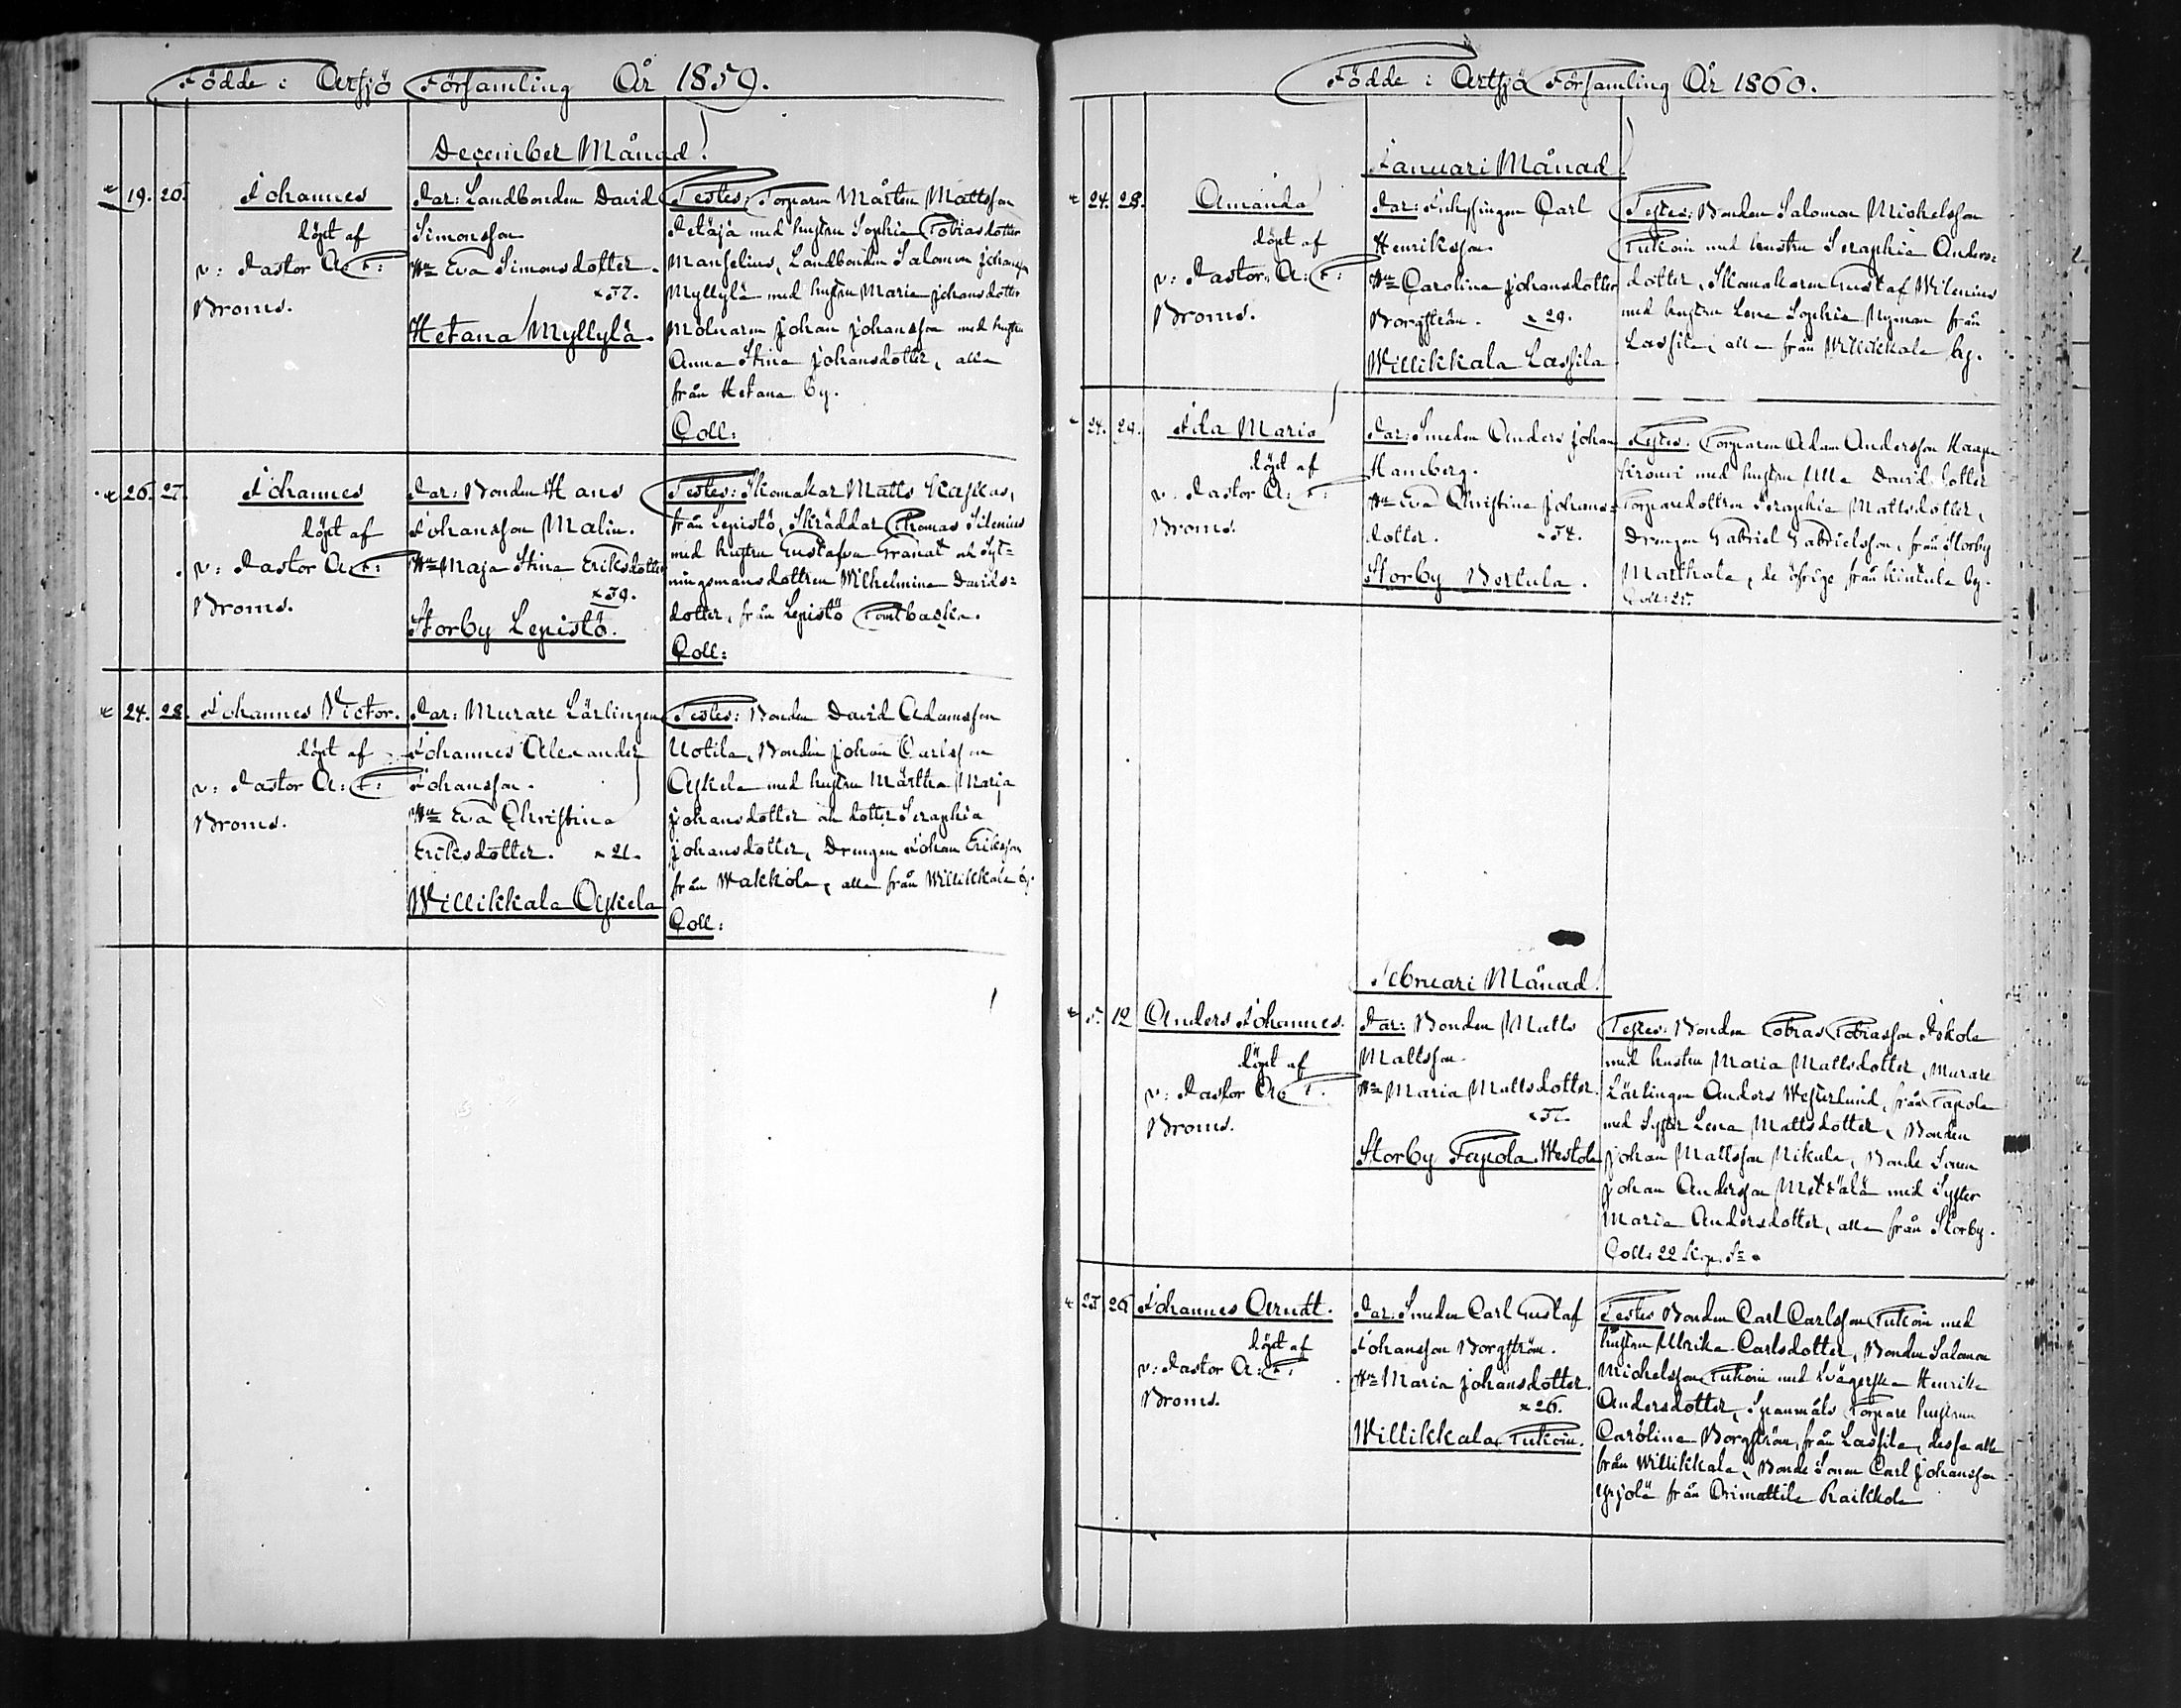 Födde i Artsjö Församling År 1859.
December Månad.
19. 20.
Johannes
döpt af
v: Pastor A: F:
Broms.
Far: Landbonden David
Simonsson
Hu Eva Simonsdotter.
x 37.
Hetana Myllylä.
Testes: Torparen Mårten Mattsson
Petäjä med hustru Sophia Tobiasdotter
Manselius, Landbonden Salomon Johansson
Myllylä med hustru Maria Johansdotter
Mölnaren Johan Johansson med hustru
Anna Stina Johansdotter, alla
från Hetana by.
Coll:
26. 27.
Johannes
döpt af
v: Pastor A: F:
Broms.
Far: Bonden Hans
Johansson Malin.
Hu Maja Stina Eriksdotter
x 39.
Storby Lepistö.
Testes: Skomakar Matts
från Lepistö, Skräddar Thomas Silenius
med hustru Gustafva Granat och Syt-
ningsmansdottren Wilhelmina Davids-
dotter, från Lepistö
Coll:
24. 28.
Johannes Victor.
döpt af
v: Pastor A: F:
Broms.
Far: Murare Lärlingen
Johannes Alexander
Johansson.
Hu Eva Christina
Eriksdotter. x 21.
Willikkala Aykela
Testes: Bonden David Adamsson
Uotila, Bonden Johan Carlsson
Aykela med hustru Märtha Maria
Johansdotter och dotter Seraphia
Johansdotter, Drengen Johan Eriksson
från Wakkola, alla från Willikkala by.
Coll:
Födde i Artsjö Församling År 1860.
Januari Månad
24. 28.
Amanda
döpt af
v: Pastor A: F:
Broms.
Far: Inhysingen Carl
Henriksson.
Hu Carolina Johansdotter
Borgström. x 29.
Willikkala Lassila
Testes: Bonden Salomon Michelsson
Tukoin med hustru Seraphia Anders-
dotter, Skomakaren Gustaf Wilenius
med hustru Lena Sophia Nyman från
Lassila, alla från Willikkala by.
24. 29.
Ida Maria
döpt af
v. Pastor A: F:
Broms.
Far: Smeden Anders Johan
Hamberg.
Hu Eva Christina Johans-
dotter. x 34.
Storby Bertula.
Testes: Torparen Adam Andersson
med hustru Ulla Davidsdotter
Torparedottren Seraphia Mattsdotter,
Drengen Gabriel Gabrielsson, från Storby
Markkola, de öfrige från Kinkula by.
Coll: 25.
Februari Månad.
5. 12
Anders Johannes.
döpt af
v: Pastor A: F.
Broms.
Far: Bonden Matts
Mattsson.
Hu Maria Mattsdotter.
x 37.
Storby Tapola Westola
Testes: Bonden Tobias Tobiasson Askola
med hustru Maria Mattsdotter, Murare
Lärlingen Anders Westerlund, från Tapola
med Syster Lena Mattsdotter, Bonden
Johan Mattsson Nikula, Bonde Sonen
Johan Andersson Mettälä med Syster
Maria Andersdotter, alla från Storby.
Coll: 22 Kop. Sr
25. 26.
Johannes Arndt.
döpt af
v: Pastor A: F:
Broms.
Far: Smeden Carl Gustaf
Johansson Borgström.
Hu Maria Johansdotter.
x 26.
Willikkala Tukoin.
Testes Bonden Carl Carlsson Tukoin med
hustru Ulrika Carlsdotter, Bonden Salomon
Michelsson Tukoin med Svägerska Henrika
Andersdotter, Spanmåls Torpare hustrun
Carolina Borgström, från Lassila, dessa alla
från Willikkala, Bonde Sonen Carl Johansson
Yrjölä från Orimattila Raikkola